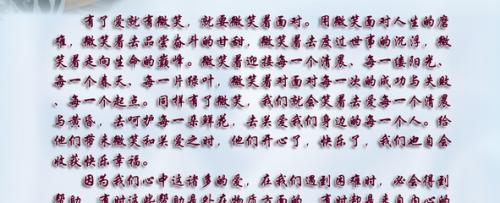 有了爱就有微笑，就要微笑着面对。用微笑面对人生的磨
难，微笑着去品尝奋斗的甘甜，微笑着去度过世事的沉浮，微
笑着走向生命的巅峰。微笑着迎接每一个清晨、每一缕阳光、
每一个春天、每一片绿叶，微笑着对面对每一次的成功与失败
、每一个起点。同样有了微笑，我们就会笑着去爱每一个清晨
与黄昏，去呵护每一朵鲜花，去关爱我们身边的每一个人。给
他们带来微笑和关爱之时，他们开心了，快乐了，我们也自会
收获快乐幸福。
因为我们心中这诸多的爱，在我们遇到困难时，必会得到
帮助，有时这些帮助是外在物质方面的，有时却是来自内心的